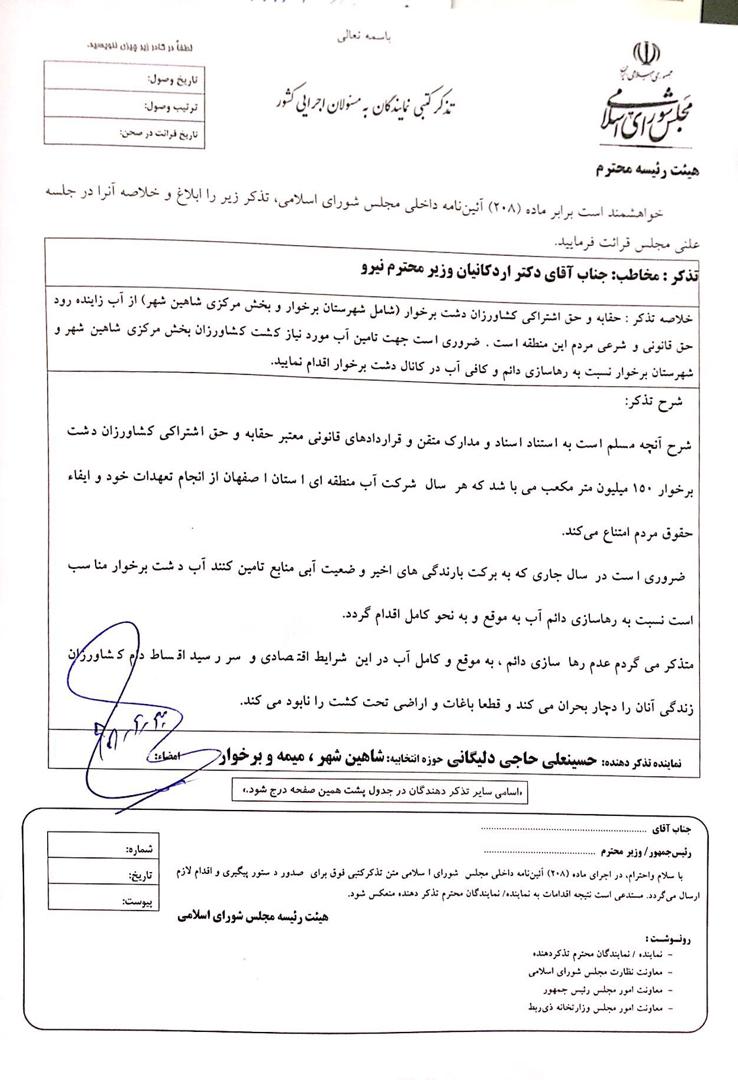 باسمه تعالی
جمهوری اسلامی ایران
مجلس شورای اسلامی
تذکر کتبی نمایندگان به مسئولان اجرایی کشور
لطفاً در کادر زیر چیزی ننویسید.
تاریخ وصول:
ترتیب وصول:
تاریخ قرائت در صحن:
هیئت رئیسه محترم
خواهشمند است برابر ماده (۲۰۸) آئین‌نامه داخلی مجلس شورای اسلامی، تذکر زیر را ابلاغ و خلاصه آنرا در جلسه
علنی مجلس قرائت فرمایید.
تذکر : مخاطب: جناب آقای دکتر اردکانیان وزیر محترم نیرو
خلاصه تذکر : حقابه و حق اشتراکی کشاورزان دشت برخوار (شامل شهرستان برخوار و بخش مرکزی شاهین شهر) از آب زاینده رود
حق قانونی و شرعی مردم این منطقه است . ضروری است جهت تامین آب مورد نیاز کشت کشاورزان بخش مرکزی شاهین شهر و
شهرستان برخوار نسبت به رهاسازی دائم و کافی آب در کانال دشت برخوار اقدام نمایید.
شرح تذکر:
شرح آنچه مسلم است به استناد اسناد و مدارک متقن و قراردادهای قانونی معتبر حقابه و حق اشتراکی کشاورزان دشت
برخوار ۱۵۰ میلیون متر مکعب می با شد که هر سال شرکت آب منطقه ای ا ستان ا صفهان از انجام تعهدات خود و ایفاء
حقوق مردم امتناع می‌کند.
ضروری ا ست در سال جاری که به برکت بارندگی های اخیر و ضعیت آبی منابع تامین کنند آب د شت برخوار منا سب
است نسبت به رهاسازی دائم آب به موقع و به نحو کامل اقدام گردد.
متذکر می گردم عدم رها سازی دائم ، به موقع و کامل آب در این شرایط اقتصادی و سر رسید اقساط دام کشاورزان
زندگی آنان را دچار بحران می کند و قطعا باغات و اراضی تحت کشت را نابود می کند.
نماینده تذکر دهنده: حسینعلی حاجی دلیگانی حوزه انتخابیه: شاهین شهر ، میمه و برخوار امضاء:
«اسامی سایر تذکر دهندگان در جدول پشت همین صفحه درج شود.»
جناب آقای ..........................................
رئیس‌جمهور/ وزیر محترم ..........................................
شماره:
تاریخ:
پیوست:
با سلام واحترام، در اجرای ماده (۲۰۸) آئین‌نامه داخلی مجلس شورای ا سلامی متن تذکرکتبی فوق برای صدور د ستور پیگیری و اقدام لازم
ارسال می‌گردد. مستدعی است نتیجه اقدامات به نماینده/ نمایندگان محترم تذکر دهنده منعکس شود.
هیئت رئیسه مجلس شورای اسلامی
رونوشت :
- نماینده / نمایندگان محترم تذکردهنده
- معاونت نظارت مجلس شورای اسلامی
- معاونت امور مجلس رئیس جمهور
- معاونت امور مجلس وزارتخانه ذی‌ربط